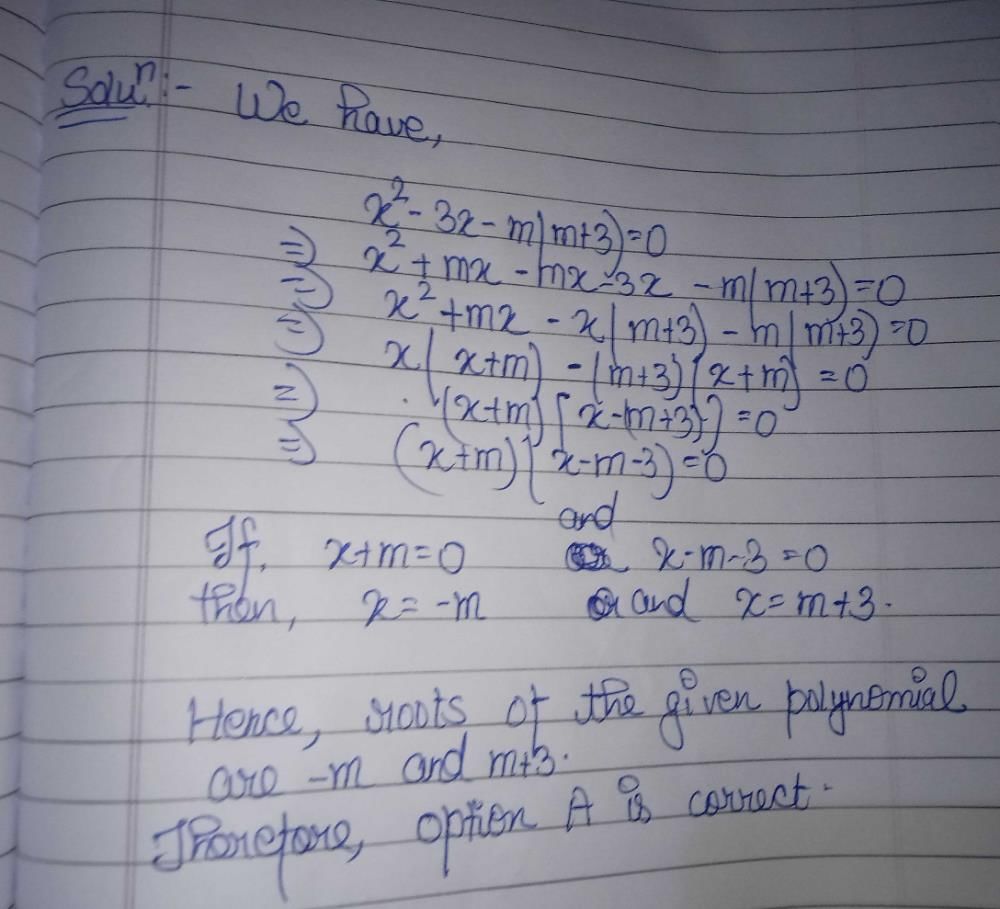 Soluⁿ:- We have,
x² - 3x - m(m+3)=0
=) x² + mx - mx - 3x - m(m+3)=0
=) x² + mx - x(m+3) - m(m+3)=0
=) x(x+m) - (m+3)(x+m) = 0
=) (x+m)[x-(m+3)]=0
=) (x+m)(x-m-3)=0
and
If, x+m=0 x-m-3=0
then, x= -m and x= m+3.
Hence, roots of the given polynomial
are -m and m+3.
Therefore, option A is correct.